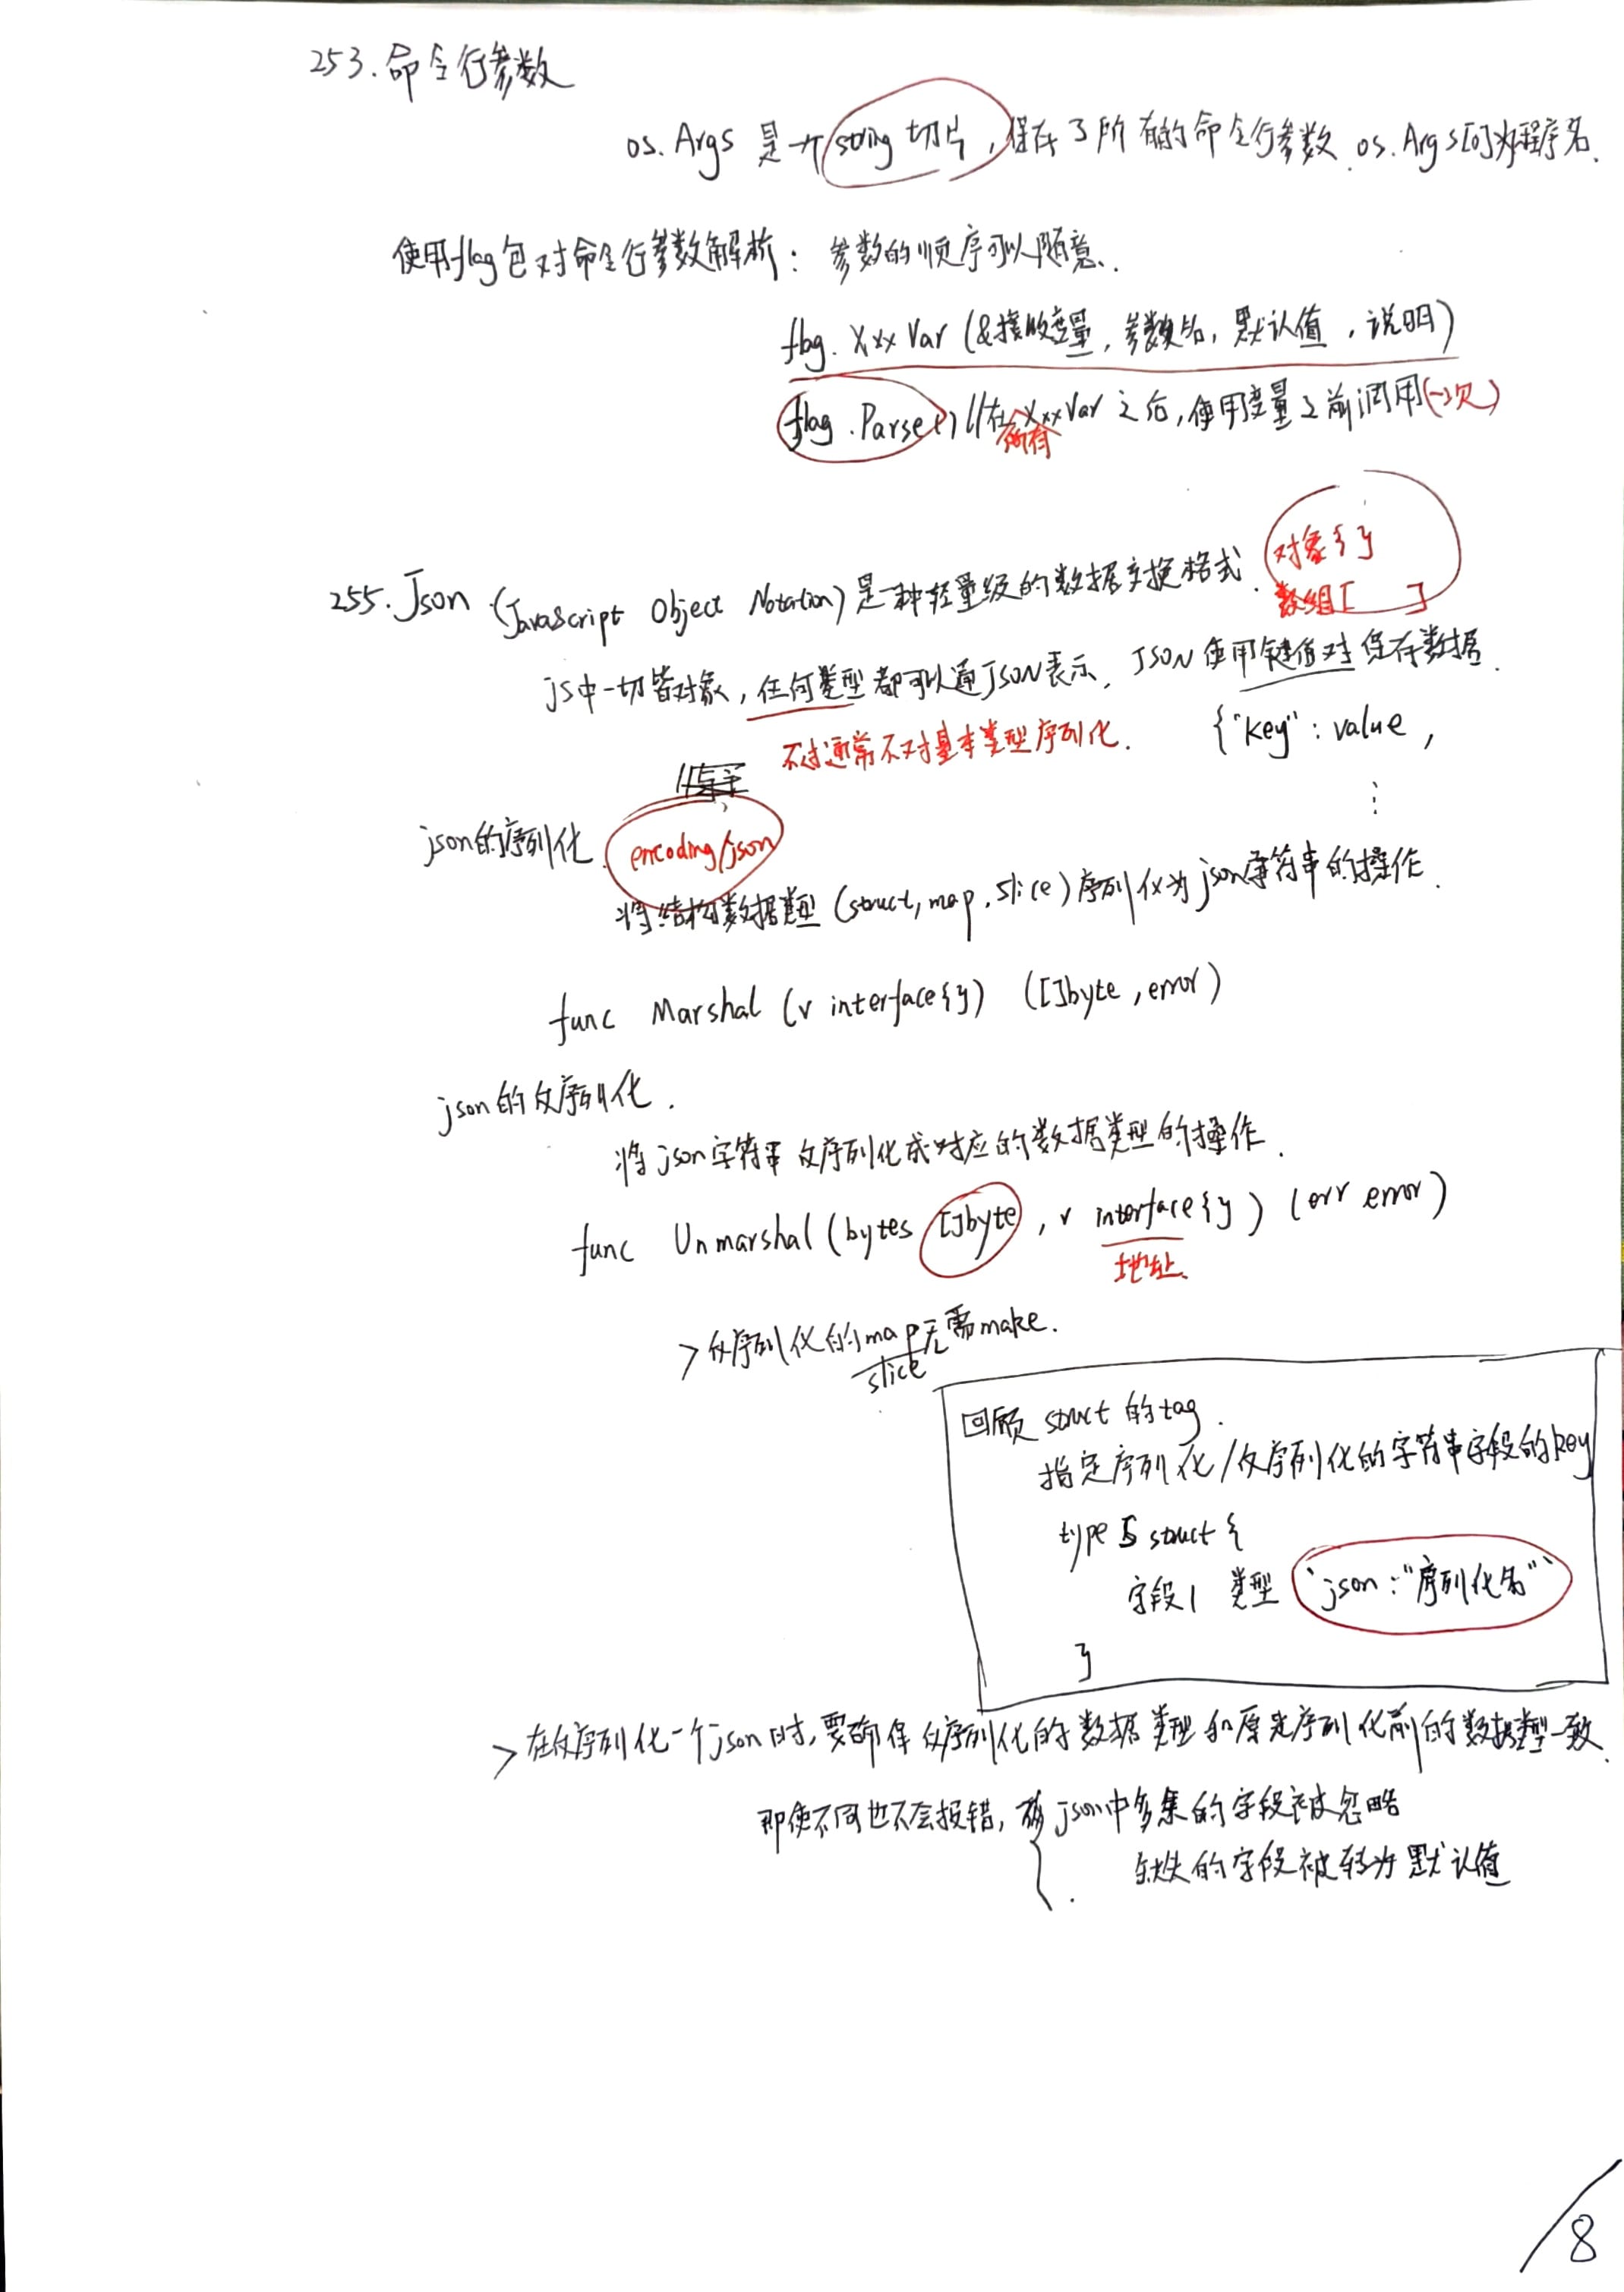 253. 命令行参数
os. Args 是一个 string 切片, 保存了所有的命令行参数. os. Args[0]为程序名.
使用flag包对命令行参数解析: 参数的顺序可以随意.
flag. XxxVar (&接收变量, 参数名, 默认值, 说明)
flag.Parse() //在所有XxxVar 之后, 使用变量之前调用(一次)
对象{ }
数组[ ]
255. Json (Javascript Object Notation) 是一种轻量级的数据交换格式.
js中一切皆对象, 任何类型都可以通JSON表示, JSON 使用键值对保存数据.
不过通常不对基本类型序列化. {"key": value,
⋮
json的序列化. encoding/json
将结构数据类型 (struct, map, slice) 序列化为json字符串的操作.
func Marshal (v interface{}) ([]byte, error)
json的反序列化.
将json字符串反序列化成对应的数据类型的操作.
func Unmarshal (bytes []byte, v interface{}) (err error)
地址.
> 反序列化的map无需make.
slice
回顾 struct 的tag.
指定序列化/反序列化的字符串字段的key
type S struct {
字段1 类型 `json:"序列化名"`
}
> 在反序列化一个json时, 要确保反序列化的数据类型和原先序列化前的数据类型一致.
即使不同也不会报错, json中多余的字段被忽略
缺失的字段被转为默认值
/8